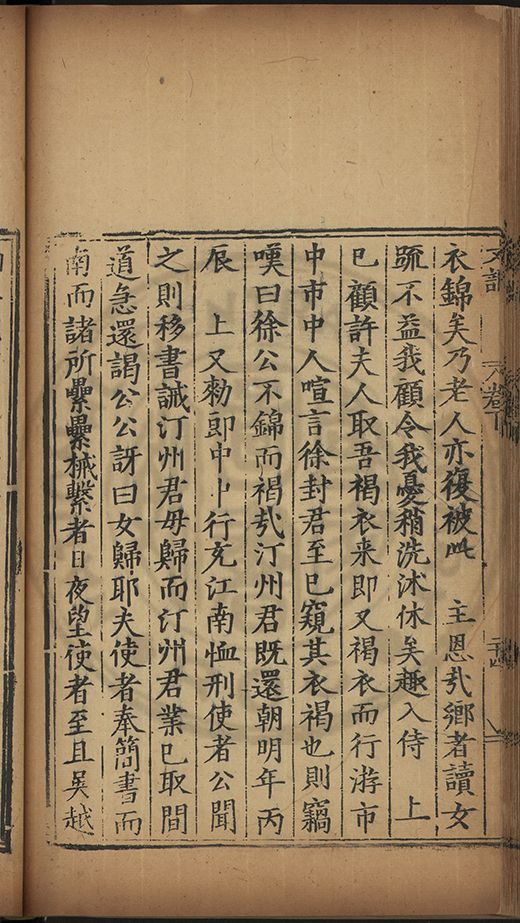 衣錦矣乃老人亦復被此　主恩哉鄉者讀女
疏不益我顧令我憂稍洗沐休矣趣入侍　上
已顧許夫人取吾褐衣来即又褐衣而行游市
中市中人喧言徐封君至已窺其衣褐也則竊
嘆曰徐公不錦而褐哉汀州君既還朝明年丙
辰　上又勑郎中卜行充江南恤刑使者公聞
之則移書誡汀州君毋歸而汀州君業已取間
道急還謁公公訝曰女歸耶夫使者奉簡書而
南而諸所纍纍械繫者日夜望使者至且吳越